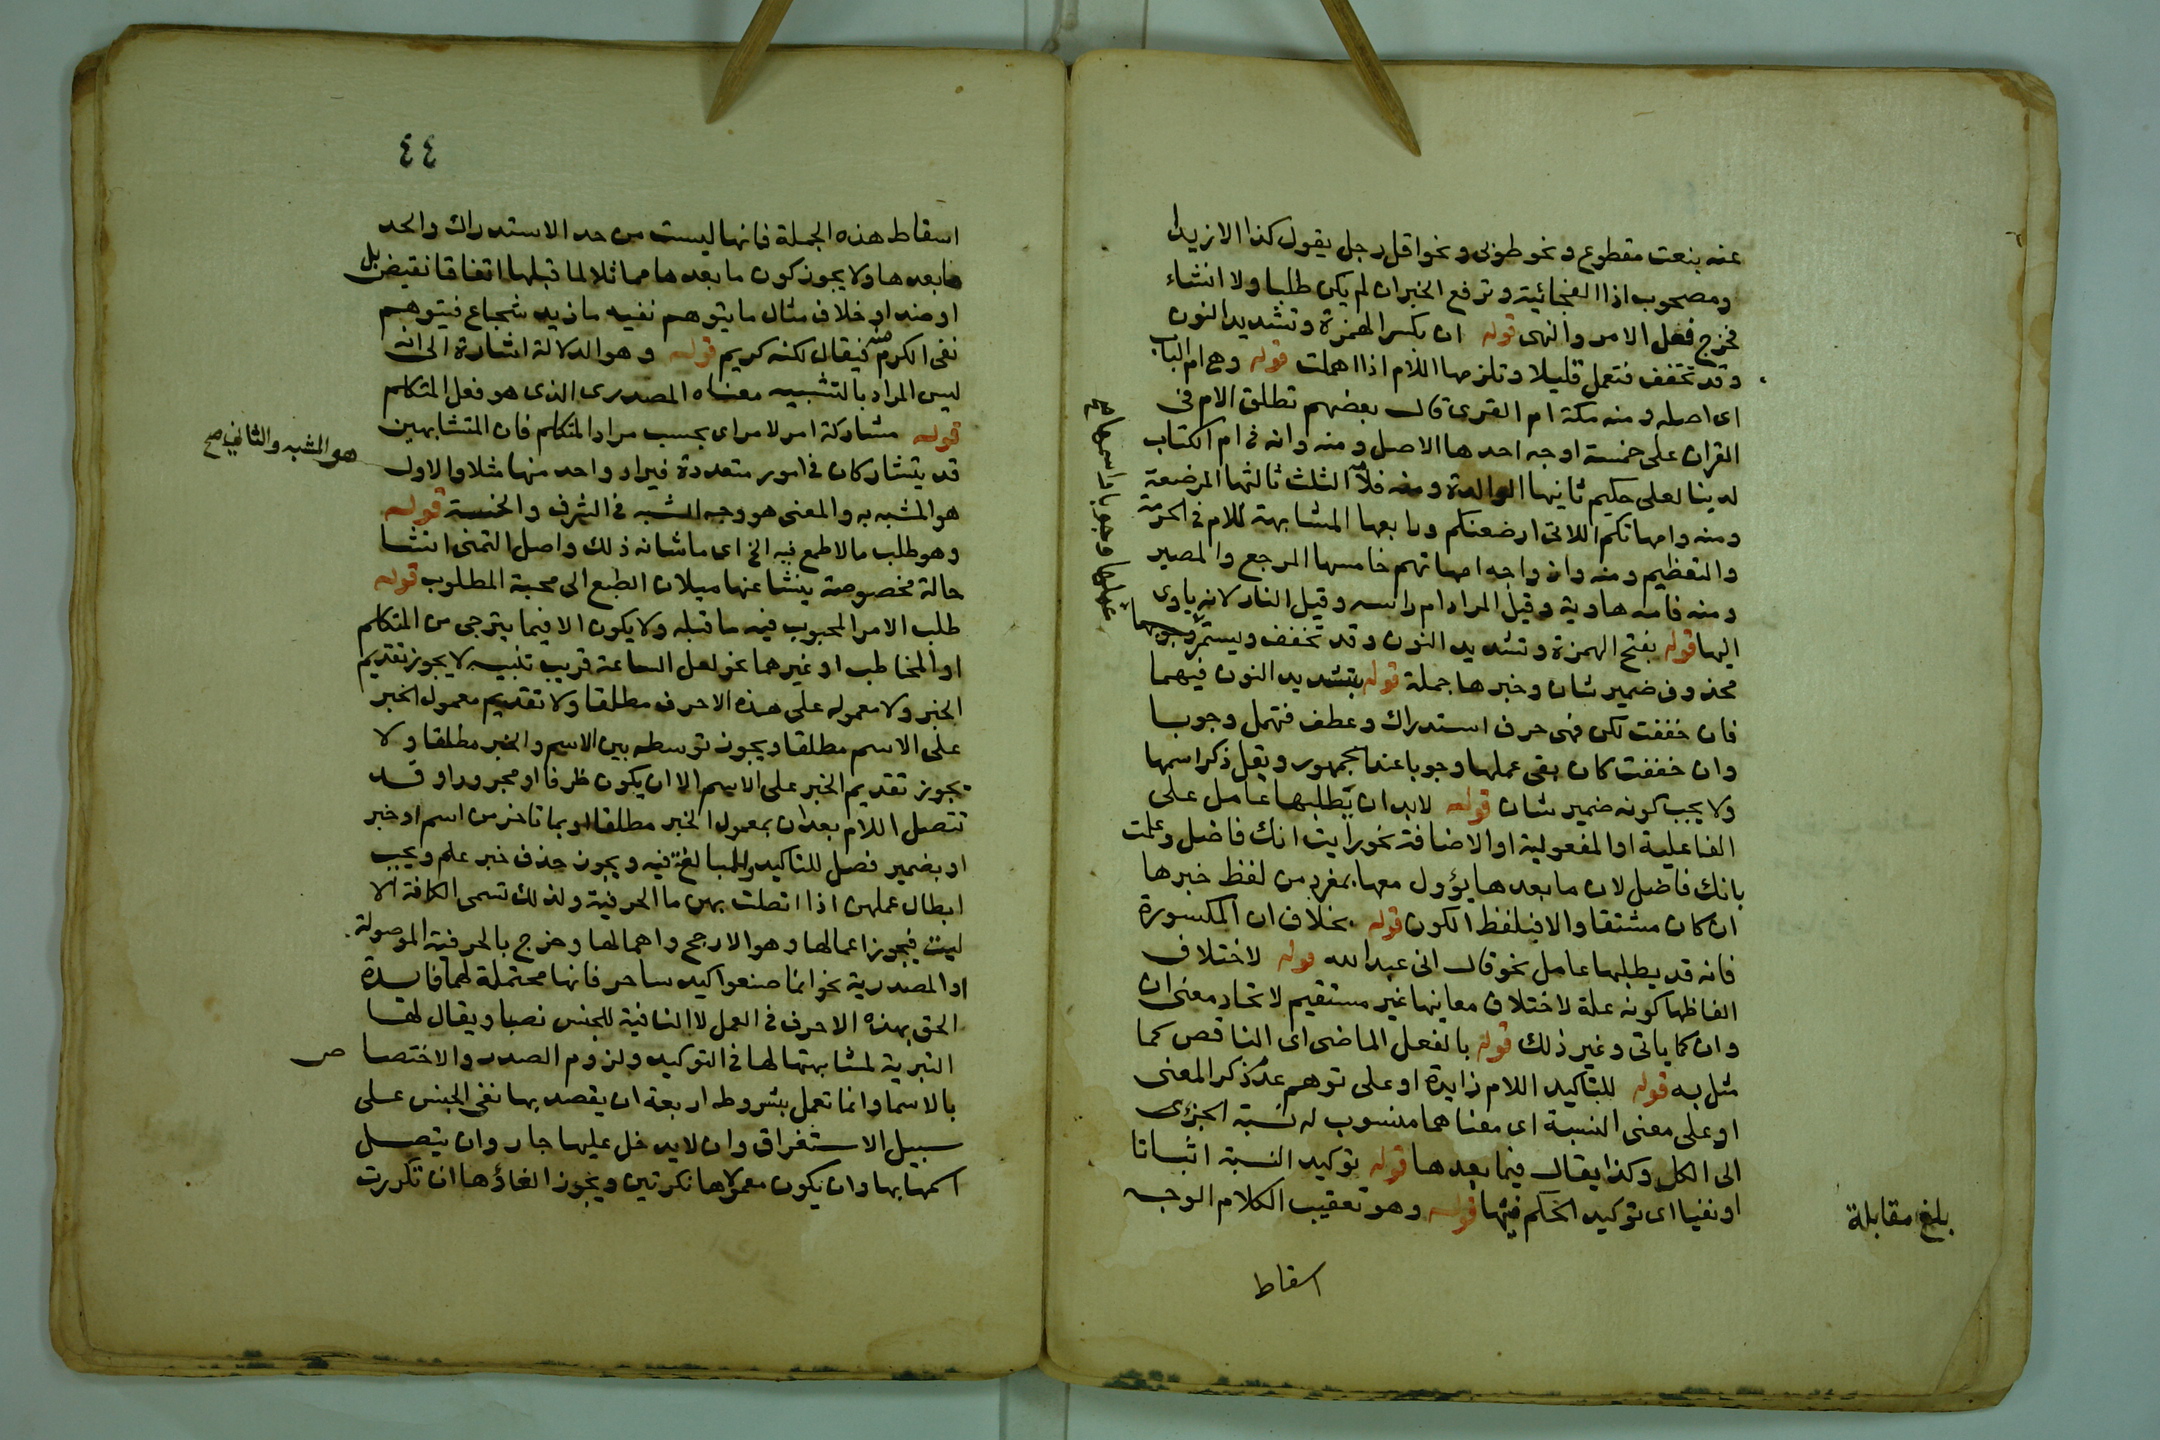 عنه بنعت مقطوع ونحو طوبى ونحو اقل رجل يقول كذا الا زيدا
ومصحوب اذا الفجائية وترفع الخبر ان لم يكن طلبا ولا انشاء
فخرج فعل الامر والنهى قوله ان بكسر الهمزة وتشديد النون
وقد تخفف فتعمل قليلا وتلزمها اللام اذا اهملت قوله وهى ام الباب
اى اصله ومنه مكة ام القرى قال بعضهم تطلق الام فى
القران على خمسة اوجه احدها الاصل ومنه وانه فى ام الكتاب
لدينا لعلى حكيم ثانيها الوالدة ومنه فلامه الثلث ثالثها المرضعة
ومنه وامهاتكم اللاتى ارضعنكم ورابعها المشابهة للام فى الحرمة
والتعظيم ومنه وازواجه امهاتهم خامسها المرجع والمصير
ومنه فامه هاوية وقيل المراد ام راسه وقيل النار لانه ياوى
اليها قوله بفتح الهمزة وتشديد النون وقد تخفف ويستمر وجوبها
عملها وجوبا واسمها صح
محذوف ضمير شان وخبرها جملة قوله بتشديد النون فيهما
فان خففت لكن فهى حرف استدراك وعطف فتهمل وجوبا
وان خففت كان بقى عملها وجوبا عند الجمهور ويقل ذكر اسمها
ولا يجب كونه ضمير شان قوله لابد ان يطلبها عامل على
الفاعلية او المفعولية او الاضافة نحو رايت انك فاضل وعلمت
بانك فاضل لان ما بعدها يؤول معها بمفرد من لفظ خبرها
ان كان مشتقا والا فبلفظ الكون قوله بخلاف ان المكسورة
فانه قد يطلبها عامل نحو قال انى عبد الله قوله لاختلاف
الفاظها كونه علة لاختلاف معانيها غير مستقيم لاتحاد معنى ان
وان كما ياتى وغير ذلك قوله بالفعل الماضى اى الناقص كما
مثل به قوله للتاكيد اللام زايدة او على توهم عدم ذكر المعنى
او على معنى النسبة اى معناهما منسوب له نسبة الجزئى
الى الكل وكذا يقال فيما بعدها قوله توكيد النسبة اثباتا
او نفيا اى توكيد الحكم فيها قوله وهو تعقيب الكلام الوجه
بلغ مقابلة
اسقاط
٤٤
اسقاط هذه الجملة فانها ليست من حد الاستدراك والحد
ما بعدها ولا يجوز كون ما بعدها مماثلا لما قبلها اتفاقا نقيض بل
او ضد او خلاف مثال ما يتوهم نفيه ما زيد شجاع فيتوهم
نفى الكرم منه فيقال لكنه كريم قوله وهو الدلالة اشارة الى انه
ليس المراد بالتشبيه معناه المصدرى الذى هو فعل المتكلم
قوله مشاركة امر لامر اى بحسب مراد المتكلم فان المتشابهين
قد يتشاركان فى امور متعددة فيراد واحد منها مثلا والاول
هو المشبه والثانى صح
هو المشبه به والمعنى هو وجه الشبه فى الشرف والخسة قوله
وهو طلب ما لا طمع فيه الخ اى ما شانه ذلك واصل التمنى انشا
حالة مخصوصة ينشا عنها ميلان الطبع الى محبة المطلوب قوله
طلب الامر المحبوب فيه ما قبله ولا يكون الا فيما يترجى من المتكلم
او المخاطب او غيرهما نحو لعل الساعة قريب تنبيه لا يجوز تقديم
الخبر ولا معموله على هذه الاحرف مطلقا ولا تقديم معمول الخبر
على الاسم مطلقا ويجوز توسطه بين الاسم والخبر مطلقا ولا
يجوز تقديم الخبر على الاسم الا ان يكون ظرفا او مجرورا وقد
تتصل اللام بعد ان بمعمول الخبر مطلقا وبما تاخر من اسم او خبر
او بضمير فصل للتاكيد والمبالغة فيه ويجوز حذف خبر علم ويجب
ابطال عملهن اذا اتصلت بهن ما الحرفية ولذلك تسمى الكافة الا
ليت فيجوز اعمالها وهو الارجح واهمالها وخرج بالحرفية الموصولة
او المصدرية نحو انما صنعوا كيد ساحر فانها محتملة لهما فايدة
الحق بهذه الاحرف فى العمل لا النافية للجنس نصبا ويقال لها
التبرية لمشابهتها لها فى التوكيد ولزوم الصدر والاختصا ص
بالاسما وانما تعمل بشروط اربعة ان يقصد بها نفى الجنس على
سبيل الاستغراق وان لا يدخل عليها جار وان يتصل
اسمها بها وان يكون معمولاها نكرتين ويجوز الغاؤها ان تكررت